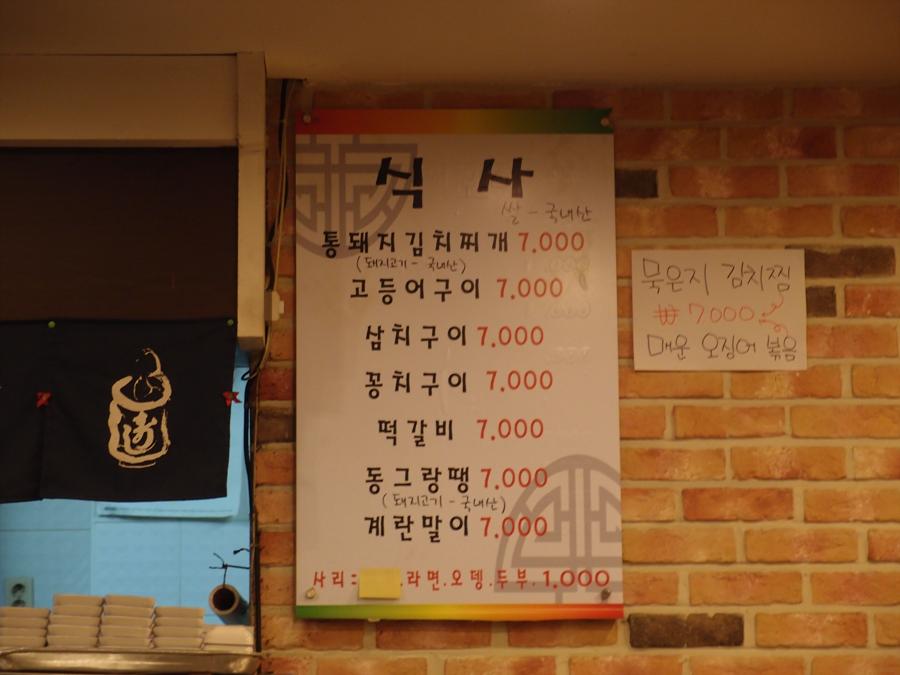 식 사
쌀 - 국내산
통돼지김치찌개 7.000
(돼지고기 - 국내산)
고등어구이 7.000
삼치구이 7.000
꽁치구이 7.000
떡갈비 7.000
동그랑땡 7.000
(돼지고기 - 국내산)
계란말이 7.000
사리: .라면.오뎅.두부.1.000
묵은지 김치찜
₩ 7000
매운 오징어 볶음